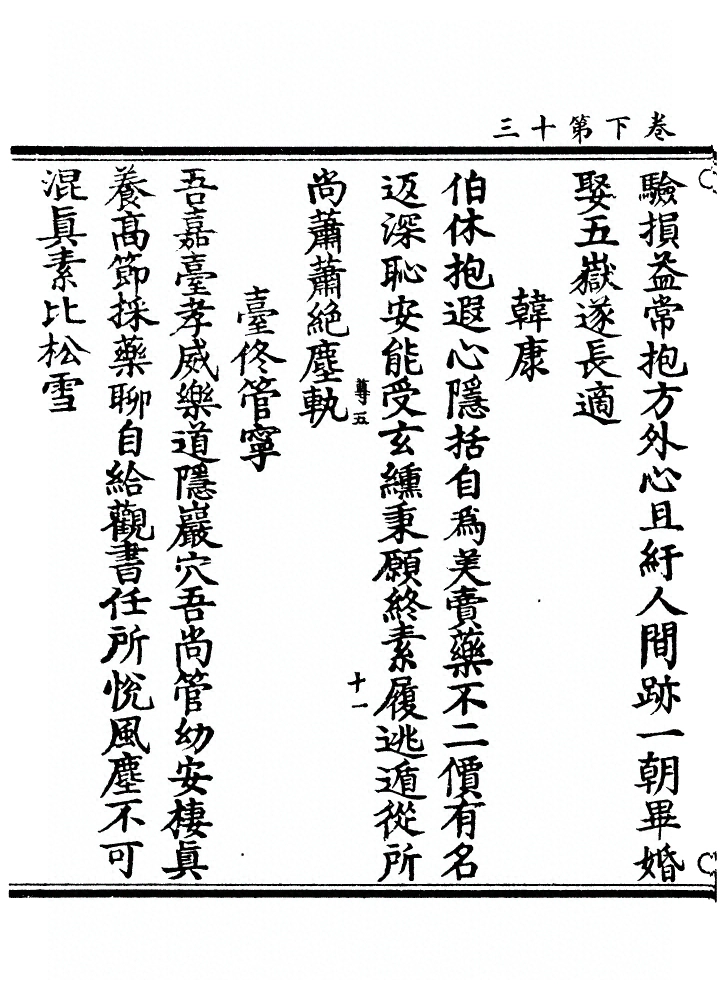 卷下第十三
驗損益常抱方外心且紆人間跡一朝畢婚
娶五嶽遂長適
韓康
伯休抱遐心隱括自為美賣藥不二價有名
迈深恥安能受玄纁秉願終素履逃遁從所
尊五
十一
尚蕭蕭絕塵軌
臺佟管寧
吾嘉臺孝威樂道隱巖穴吾尚管幼安棲真
養高節採藥聊自給觀書任所悅風塵不可
混真素比松雪